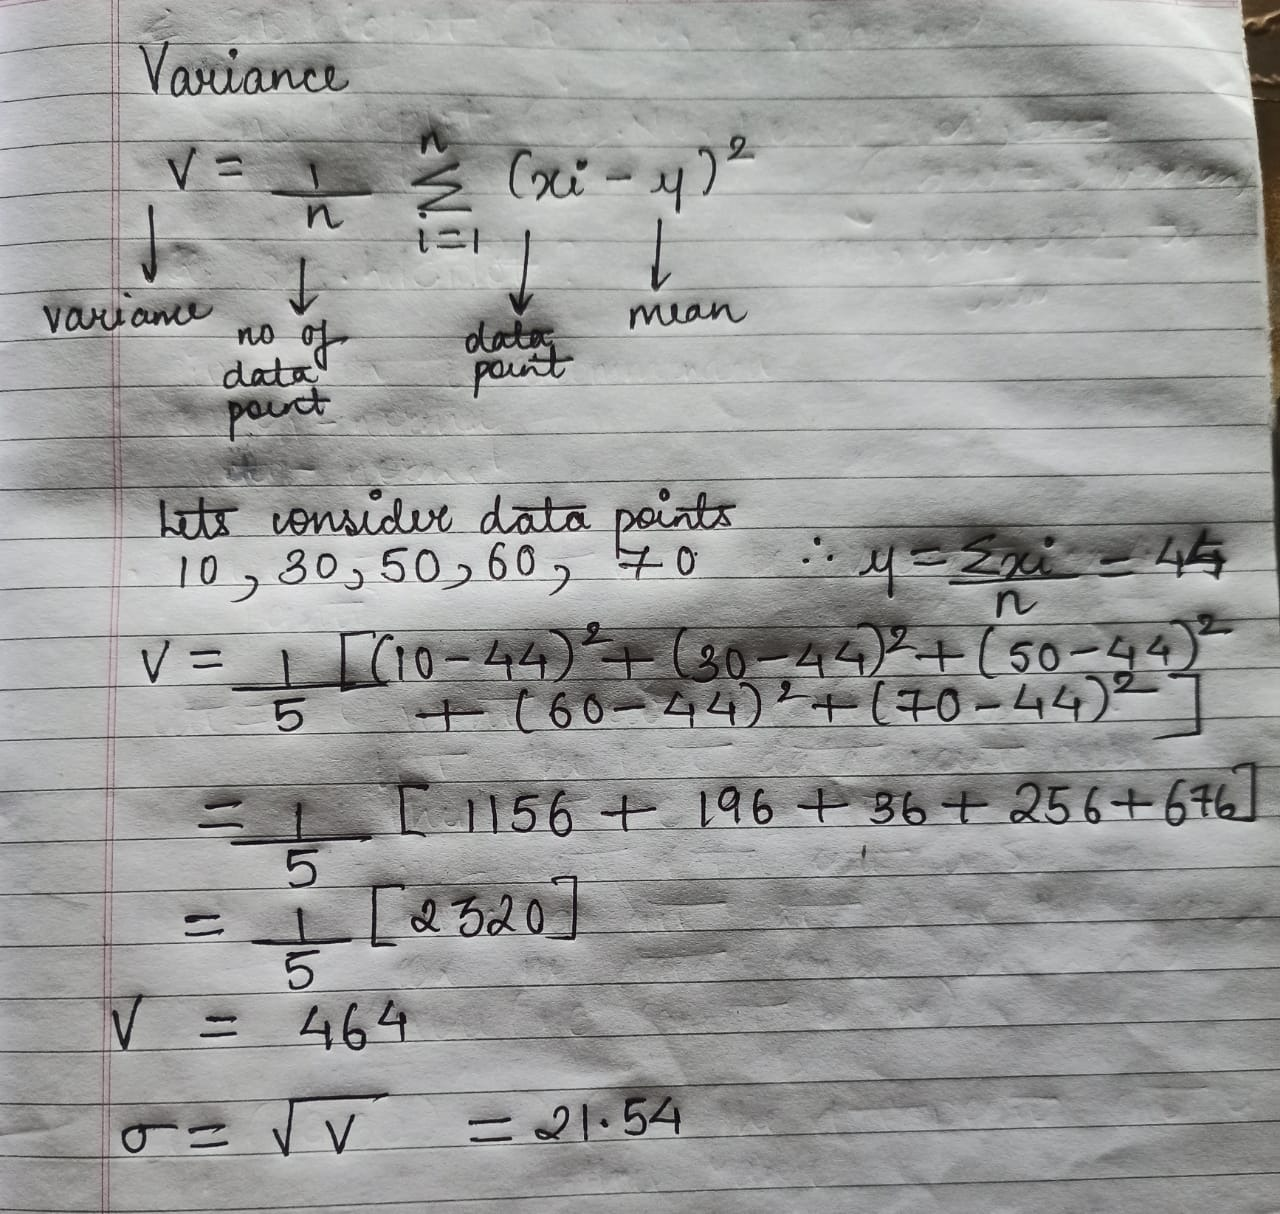 Variance
V = 1/n n Σ i=1 (xi - y)²
variance
no of data point
data point
mean
Lets consider data points
10, 30, 50, 60, 70 ∴ y = Σxi/n = 44
V = 1/5 [(10-44)² + (30-44)² + (50-44)²
+ (60-44)² + (70-44)²]
= 1/5 [1156 + 196 + 36 + 256 + 676]
= 1/5 [2320]
V = 464
σ = √V = 21.54